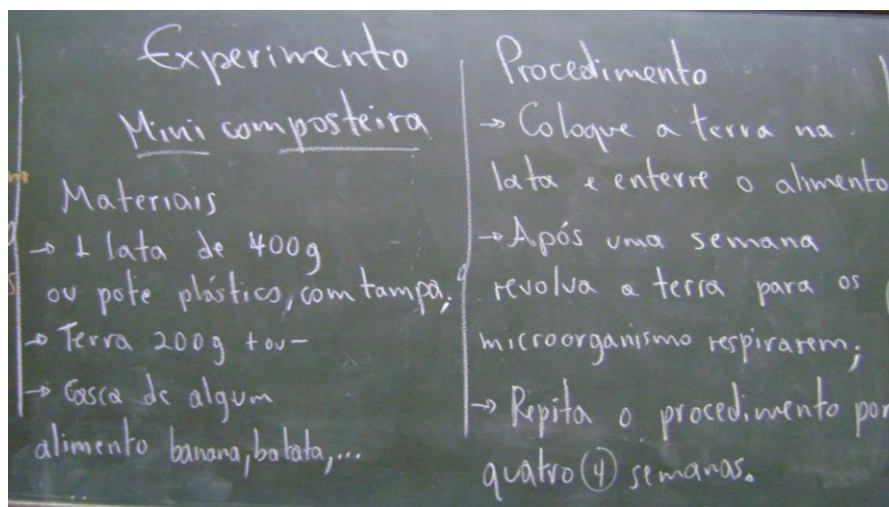 Experimento
Mini composteira
Materiais
→ 1 lata de 400g
ou pote plástico, com tampa;
→ Terra 200g + ou -
→ Casca de algum
alimento banana, batata, ...
Procedimento
→ Coloque a terra na
lata e enterre o alimento
→ Após uma semana
revolva a terra para os
microorganismo respirarem;
→ Repita o procedimento por
quatro (4) semanas.